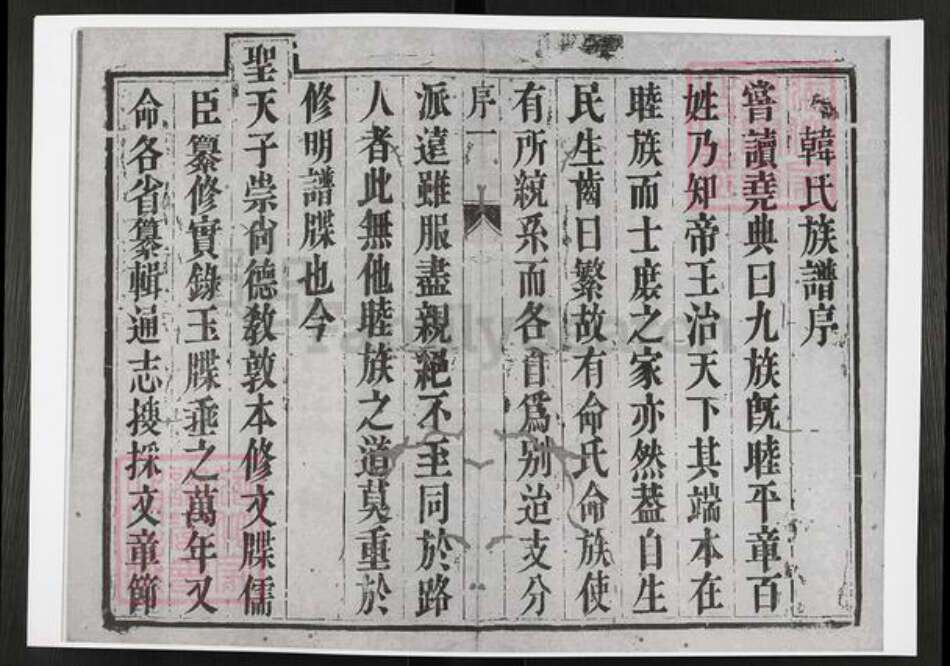 韓氏族譜序
嘗讀堯典曰九族既睦平章百
姓乃知帝王治天下其端本在
睦族而士庶之家亦然葢自生
民生齒日繁故有命氏命族使
有所統系而各自爲别迨支分
序一
派遠雖服盡親絕不至同於路
人者此無他睦族之道莫重於
修明譜牒也今
聖天子崇尚德教敦本修文牒儒
臣纂修實錄玉牒垂之萬年又
命各省纂輯通志搜採文章節